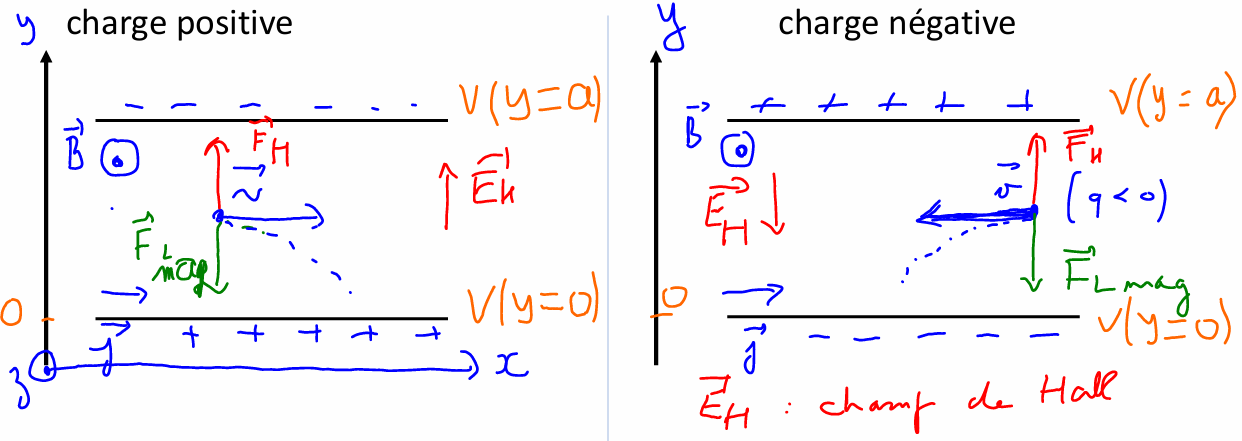 y charge positive
- - - - - - V(y=a)
B⃗ F⃗H
v⃗ E⃗H
F⃗L mag
0 V(y=0)
j⃗ + + + + +
z x
y charge négative
+ + + + + V(y=a)
B⃗ F⃗H
E⃗H v⃗ (q<0)
F⃗L mag
0
j⃗ - - - - - V(y=0)
E⃗H : champ de Hall